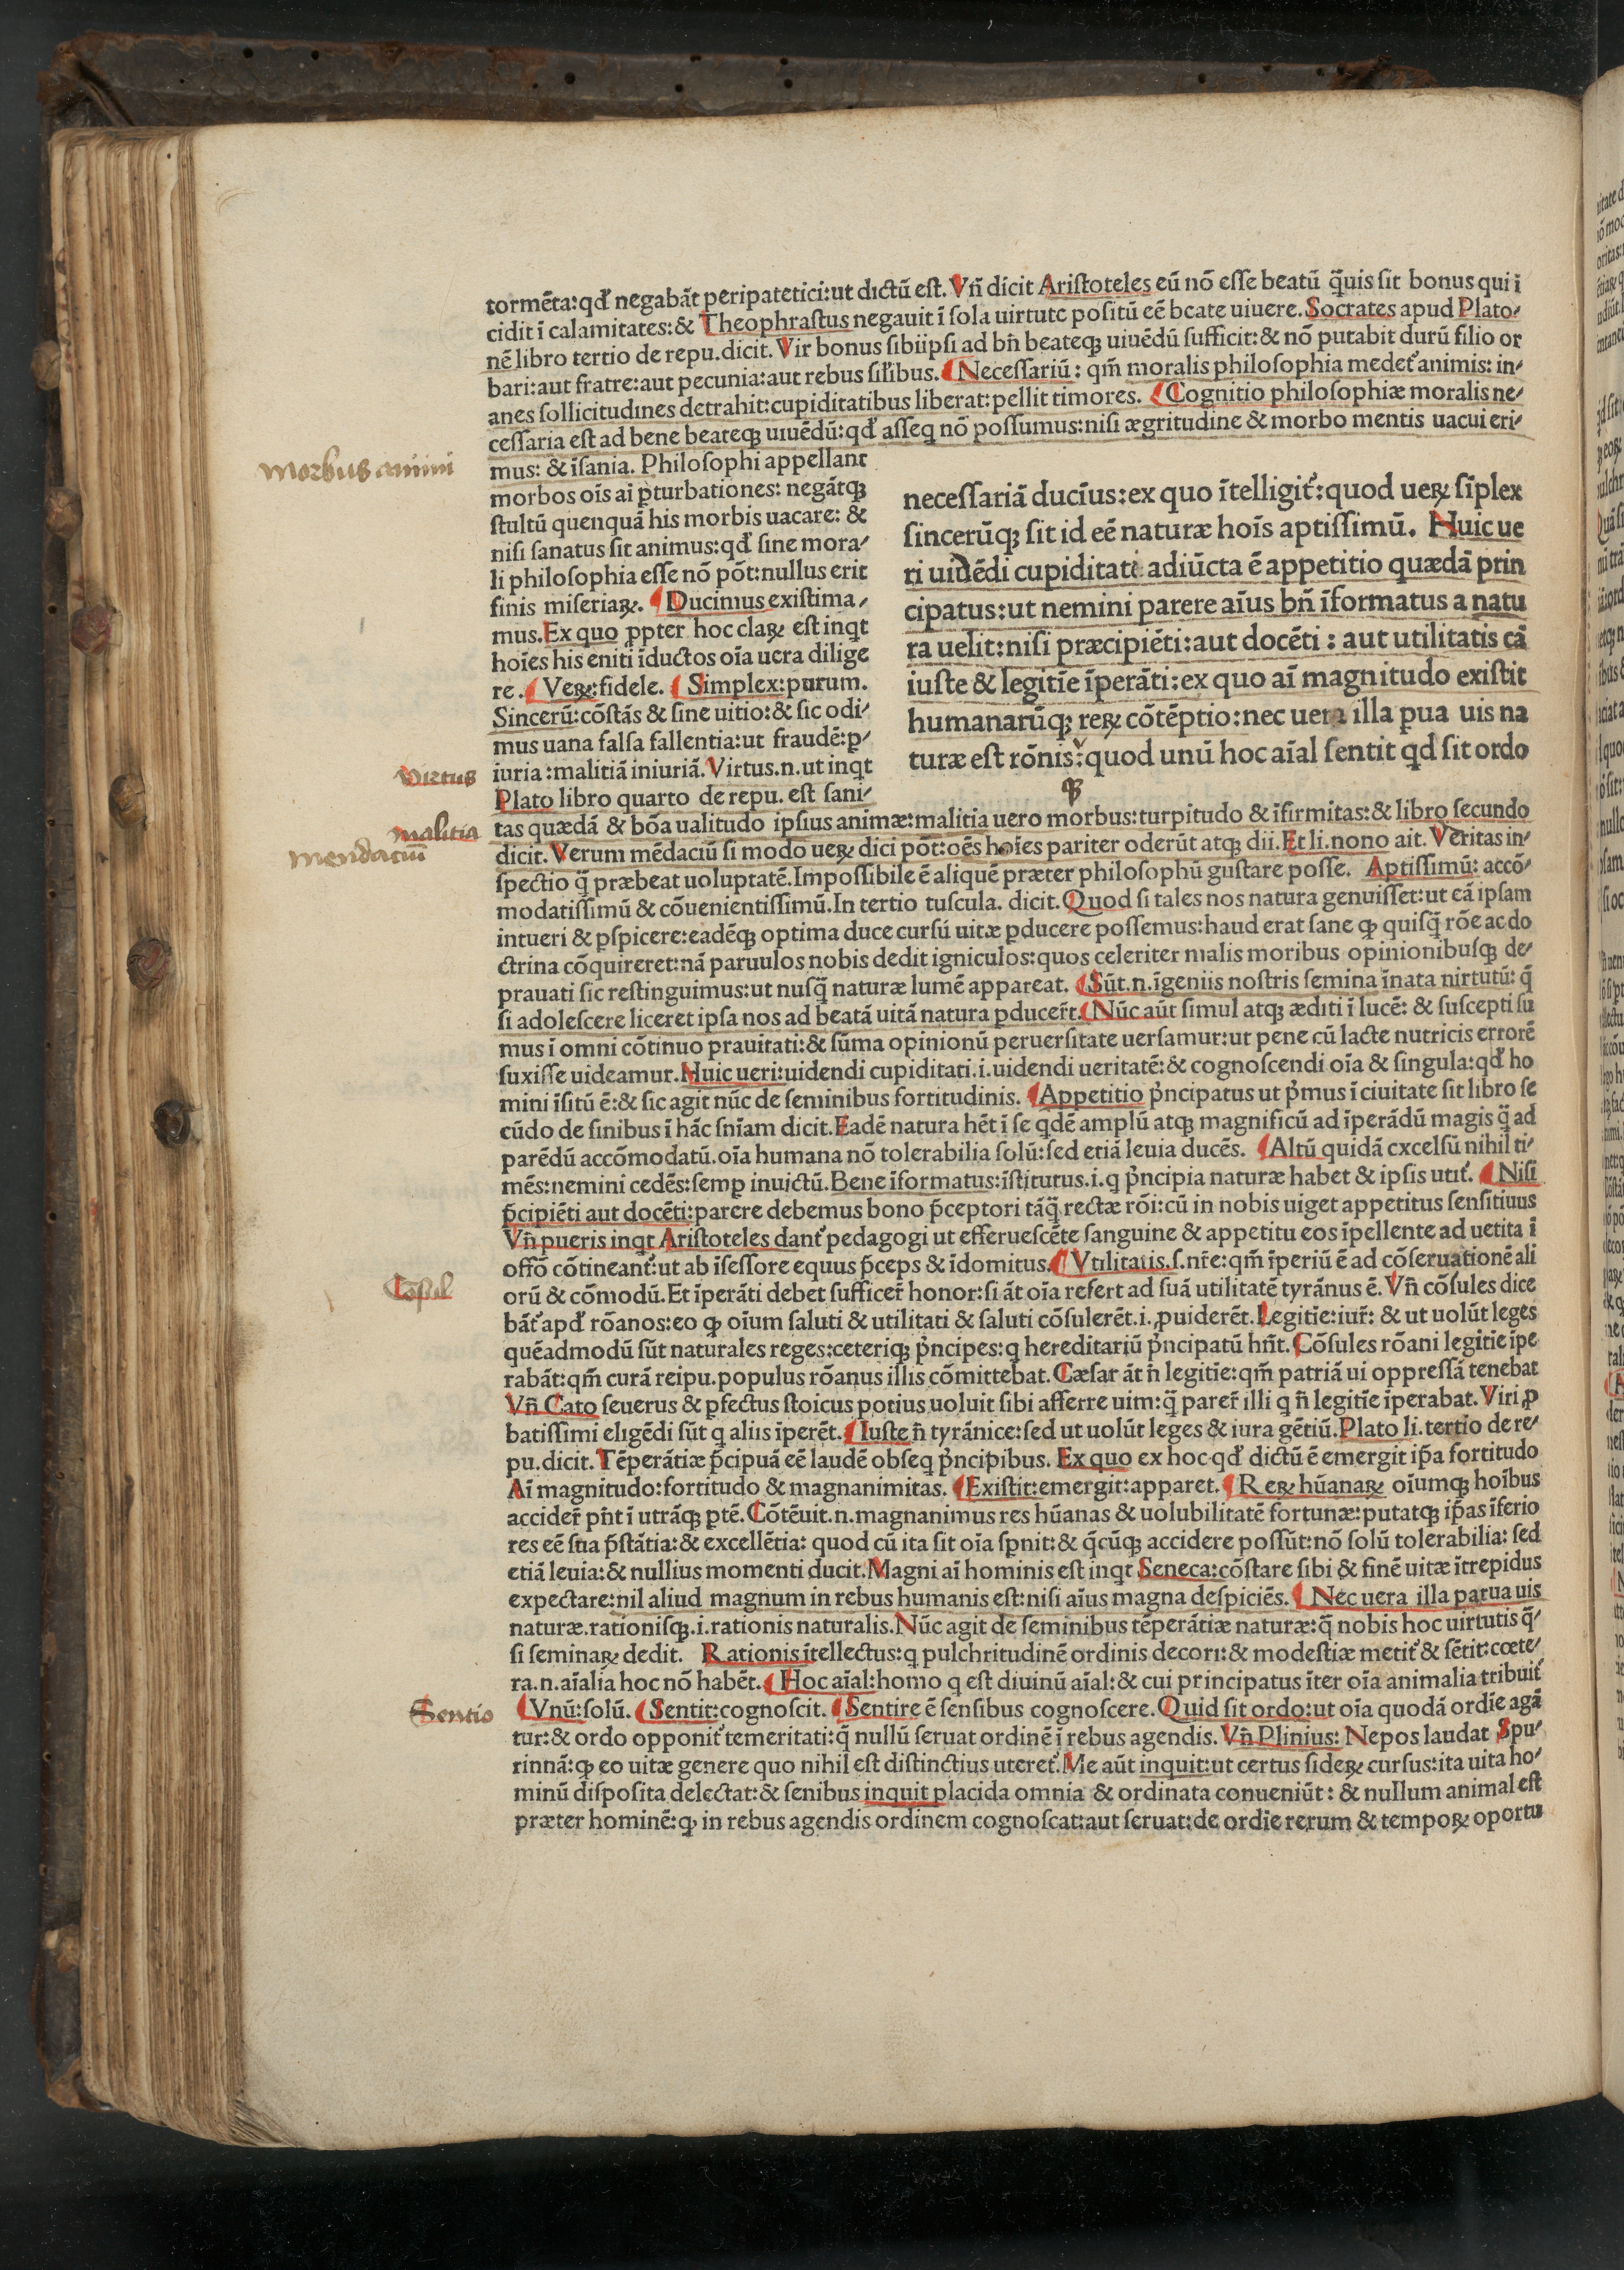 tormēta:qd̄ negabāt peripatetici:ut dictū est. Vn̄ dicit Aristoteles eū nō esse beatū q̄uis sit bonus qui ī
cidit ī calamitates:& Theophrastus negauit ī sola uirtute positū eē beate uiuere. Socrates apud Plato⸗
nē libro tertio de repu.dicit. Vir bonus sibiipsi ad bn̄ beateqꝫ uiuēdū sufficit:& nō putabit durū filio or
bari:aut fratre:aut pecunia:aut rebus sil̄ibus. ¶ Necessariū: qm̄ moralis philosophia medet᷑ animis: in⸗
anes sollicitudines detrahit:cupiditatibus liberat:pellit timores. ¶ Cognitio philosophiæ moralis ne⸗
cessaria est ad bene beateqꝫ uiuēdū:qd̄ asseq nō possumus:nisi ægritudine & morbo mentis uacui eri⸗
Morbus animi
mus: & īsania. Philosophi appellant
morbos oīs aī p̱turbationes: negātqꝫ
stultū quenquā his morbis uacare: &
nisi sanatus sit animus:qd̄ sine mora⸗
li philosophia esse nō pōt:nullus erit
finis miseriaꝝ. ¶ Ducimus existima⸗
mus.Ex quo ꝓpter hoc claꝝ est inqt
hoīes his eniti īductos oīa uera dilige
re. ¶ Veꝝ:fidele. ¶ Simplex:purum.
Sincerū:cōstās & sine uitio:& sic odi⸗
mus uana falsa fallentia:ut fraudē:ꝑ⸗
Virtus
iuria:malitiā iniuriā. Virtus.n.ut inqt
Plato libro quarto de repu. est sani⸗
necessariā ducīus:ex quo ītelligit᷑:quod ueꝝ sīplex
sincerūqꝫ sit id eē naturæ hoīs aptissimū. Huic ue
ri uidēdi cupiditati adiūcta ē appetitio quædā prin
cipatus:ut nemini parere aīus bn̄ īformatus a natu
ra uelit:nisi præcipiēti:aut docēti: aut utilitatis cā
iuste & legitīe īperāti:ex quo aī magnitudo existit
humanarūqꝫ reꝝ cōtēptio:nec uera illa pua uis na
turæ est rōnis:quod unū hoc aīal sentit qd sit ordo
malitia
mendacium
tas quædā & bōa ualitudo ipsius animæ:malitia uero morbus:turpitudo & īfirmitas:& libro secundo
dicit. Verum mēdaciū si modo ueꝝ dici pōt:oēs hoīes pariter oderūt atqꝫ dii.Et li.nono ait. Veritas in⸗
spectio q̄ præbeat uoluptatē.Impossibile ē aliquē præter philosophū gustare posse. Aptissimū: accō⸗
modatissimū & cōuenientissimū.In tertio tuscula. dicit.Quod si tales nos natura genuisset:ut eā ipsam
intueri & ꝑspicere:eadēqꝫ optima duce cursū uitæ ꝓducere possemus:haud erat sane ꝙ quisq̄ rōe ac do
ctrina cōquireret:nā paruulos nobis dedit igniculos:quos celeriter malis moribus opinionibusqꝫ de⸗
prauati sic restinguimus:ut nusq̄ naturæ lumē appareat. ¶ Sūt.n.īgeniis nostris semina īnata nirtutū: q̄
si adolescere liceret ipsa nos ad beatā uitā natura ꝓducer̄t. ¶ Nūc aūt simul atqꝫ æditi ī lucē: & suscepti su
mus ī omni cōtinuo prauitati:& sūma opinionū peruersitate uersamur:ut pene cū lacte nutricis errorē
suxisse uideamur.Huic ueri:uidendi cupiditati.i.uidendi ueritatē:& cognoscendi oīa & singula:qd̄ ho
mini īsitū ē:& sic agit nūc de seminibus fortitudinis. ¶ Appetitio p̄ncipatus ut p̄mus ī ciuitate sit libro se
cūdo de finibus ī hāc sn̄iam dicit.Eadē natura hēt ī se qdē amplū atqꝫ magnificū ad īperādū magis q̄ ad
parēdū accōmodatū.oīa humana nō tolerabilia solū:sed etiā leuia ducēs. ¶ Altū quidā cxcelsū nihil ti⸗
mēs:nemini cedēs:semꝑ inuictū.Bene īformatus:īstitutus.i.q p̄ncipia naturæ habet & ipsis utit᷑. ¶ Nisi
p̄cipiēti aut docēti:parere debemus bono p̄ceptori tāq̄ rectæ rōi:cū in nobis uiget appetitus sensitiuus
Vn̄ pueris inqt Aristoteles dant᷑ pedagogi ut efferuescēte sanguine & appetitu eos īpellente ad uetita ī
offō cōtineant᷑:ut ab īsessore equus p̄ceps & īdomitus. ¶ Vtilitatis.s.nr̄e:qm̄ īperiū ē ad cōseruationē ali
Cōsul
orū & cōmodū.Et īperāti debet sufficer̄ honor:si āt oīa refert ad suā utilitatē tyrānus ē. Vn̄ cōsules dice
bāt᷑ apd̄ rōanos:eo ꝙ oīum saluti & utilitati & saluti cōsulerēt.i.ꝓuiderēt.Legitīe:iur̄: & ut uolūt leges
quēadmodū sūt naturales reges:ceteriqꝫ p̄ncipes:q hereditariū p̄ncipatū hn̄t.Cōsules rōani legitīe īpe
rabāt:qm̄ curā reipu.populus rōanus illis cōmittebat.Cæsar āt n̄ legitīe:qm̄ patriā ui oppressā tenebat
Vn̄ Cato seuerus & ꝑfectus stoicus potius uoluit sibi afferre uim:q̄ parer̄ illi q n̄ legitīe īperabat. Viri ꝓ
batissimi eligēdi sūt q aliis īperēt. ¶ Iuste n̄ tyrānice:sed ut uolūt leges & iura gētiū.Plato li.tertio de re⸗
pu.dicit. Tēperātiæ p̄cipuā eē laudē obseq p̄ncipibus. Ex quo ex hoc qd̄ dictū ē emergit ip̄a fortitudo
Aī magnitudo:fortitudo & magnanimitas. ¶ Existit:emergit:apparet. ¶ Reꝝ hūanaꝝ oīumqꝫ hoībus
accider̄ pn̄t ī utrāqꝫ ꝑtē.Cōtēuit.n.magnanimus res hūanas & uolubilitatē fortunæ:putatqꝫ ip̄as īferio
res eē sua p̄stātia:& excellētia: quod cū ita sit oīa sꝑnit:& q̄cūqꝫ accidere possūt:nō solū tolerabilia: sed
etiā leuia:& nullius momenti ducit.Magni aī hominis est inqt Seneca:cōstare sibi & finē uitæ ītrepidus
expectare:nil aliud magnum in rebus humanis est:nisi aīus magna despiciēs. ¶ Nec uera illa parua uis
naturæ.rationisqꝫ.i.rationis naturalis.Nūc agit de seminibus tēperātiæ naturæ:q̄ nobis hoc uirtutis q̄⸗
si seminaꝝ dedit. Rationis ītellectus:q pulchritudinē ordinis decori:& modestiæ metit᷑ & sētit:cœte⸗
ra.n.aīalia hoc nō habēt. ¶ Hoc aīal:homo q est diuinū aīal:& cui principatus īter oīa animalia tribuit᷑
Sentio
¶ Vnū:solū. ¶ Sentit:cognoscit. ¶ Sentire ē sensibus cognoscere.Quid sit ordo:ut oīa quodā ordīe agā
tur:& ordo opponit᷑ temeritati:q̄ nullū seruat ordinē ī rebus agendis. Vn̄ Plinius: Nepos laudat Spu⸗
rinnā:ꝙ eo uitæ genere quo nihil est distinctius uteret᷑.Me aūt inquit:ut certus sideꝝ cursus:ita uita ho⸗
minū disposita delectat:& senibus inquit placida omnia & ordinata conueniūt: & nullum animal est
præter hominē:ꝙ in rebus agendis ordinem cognoscat:aut seruat:de ordīe rerum & tempoꝝ oportu